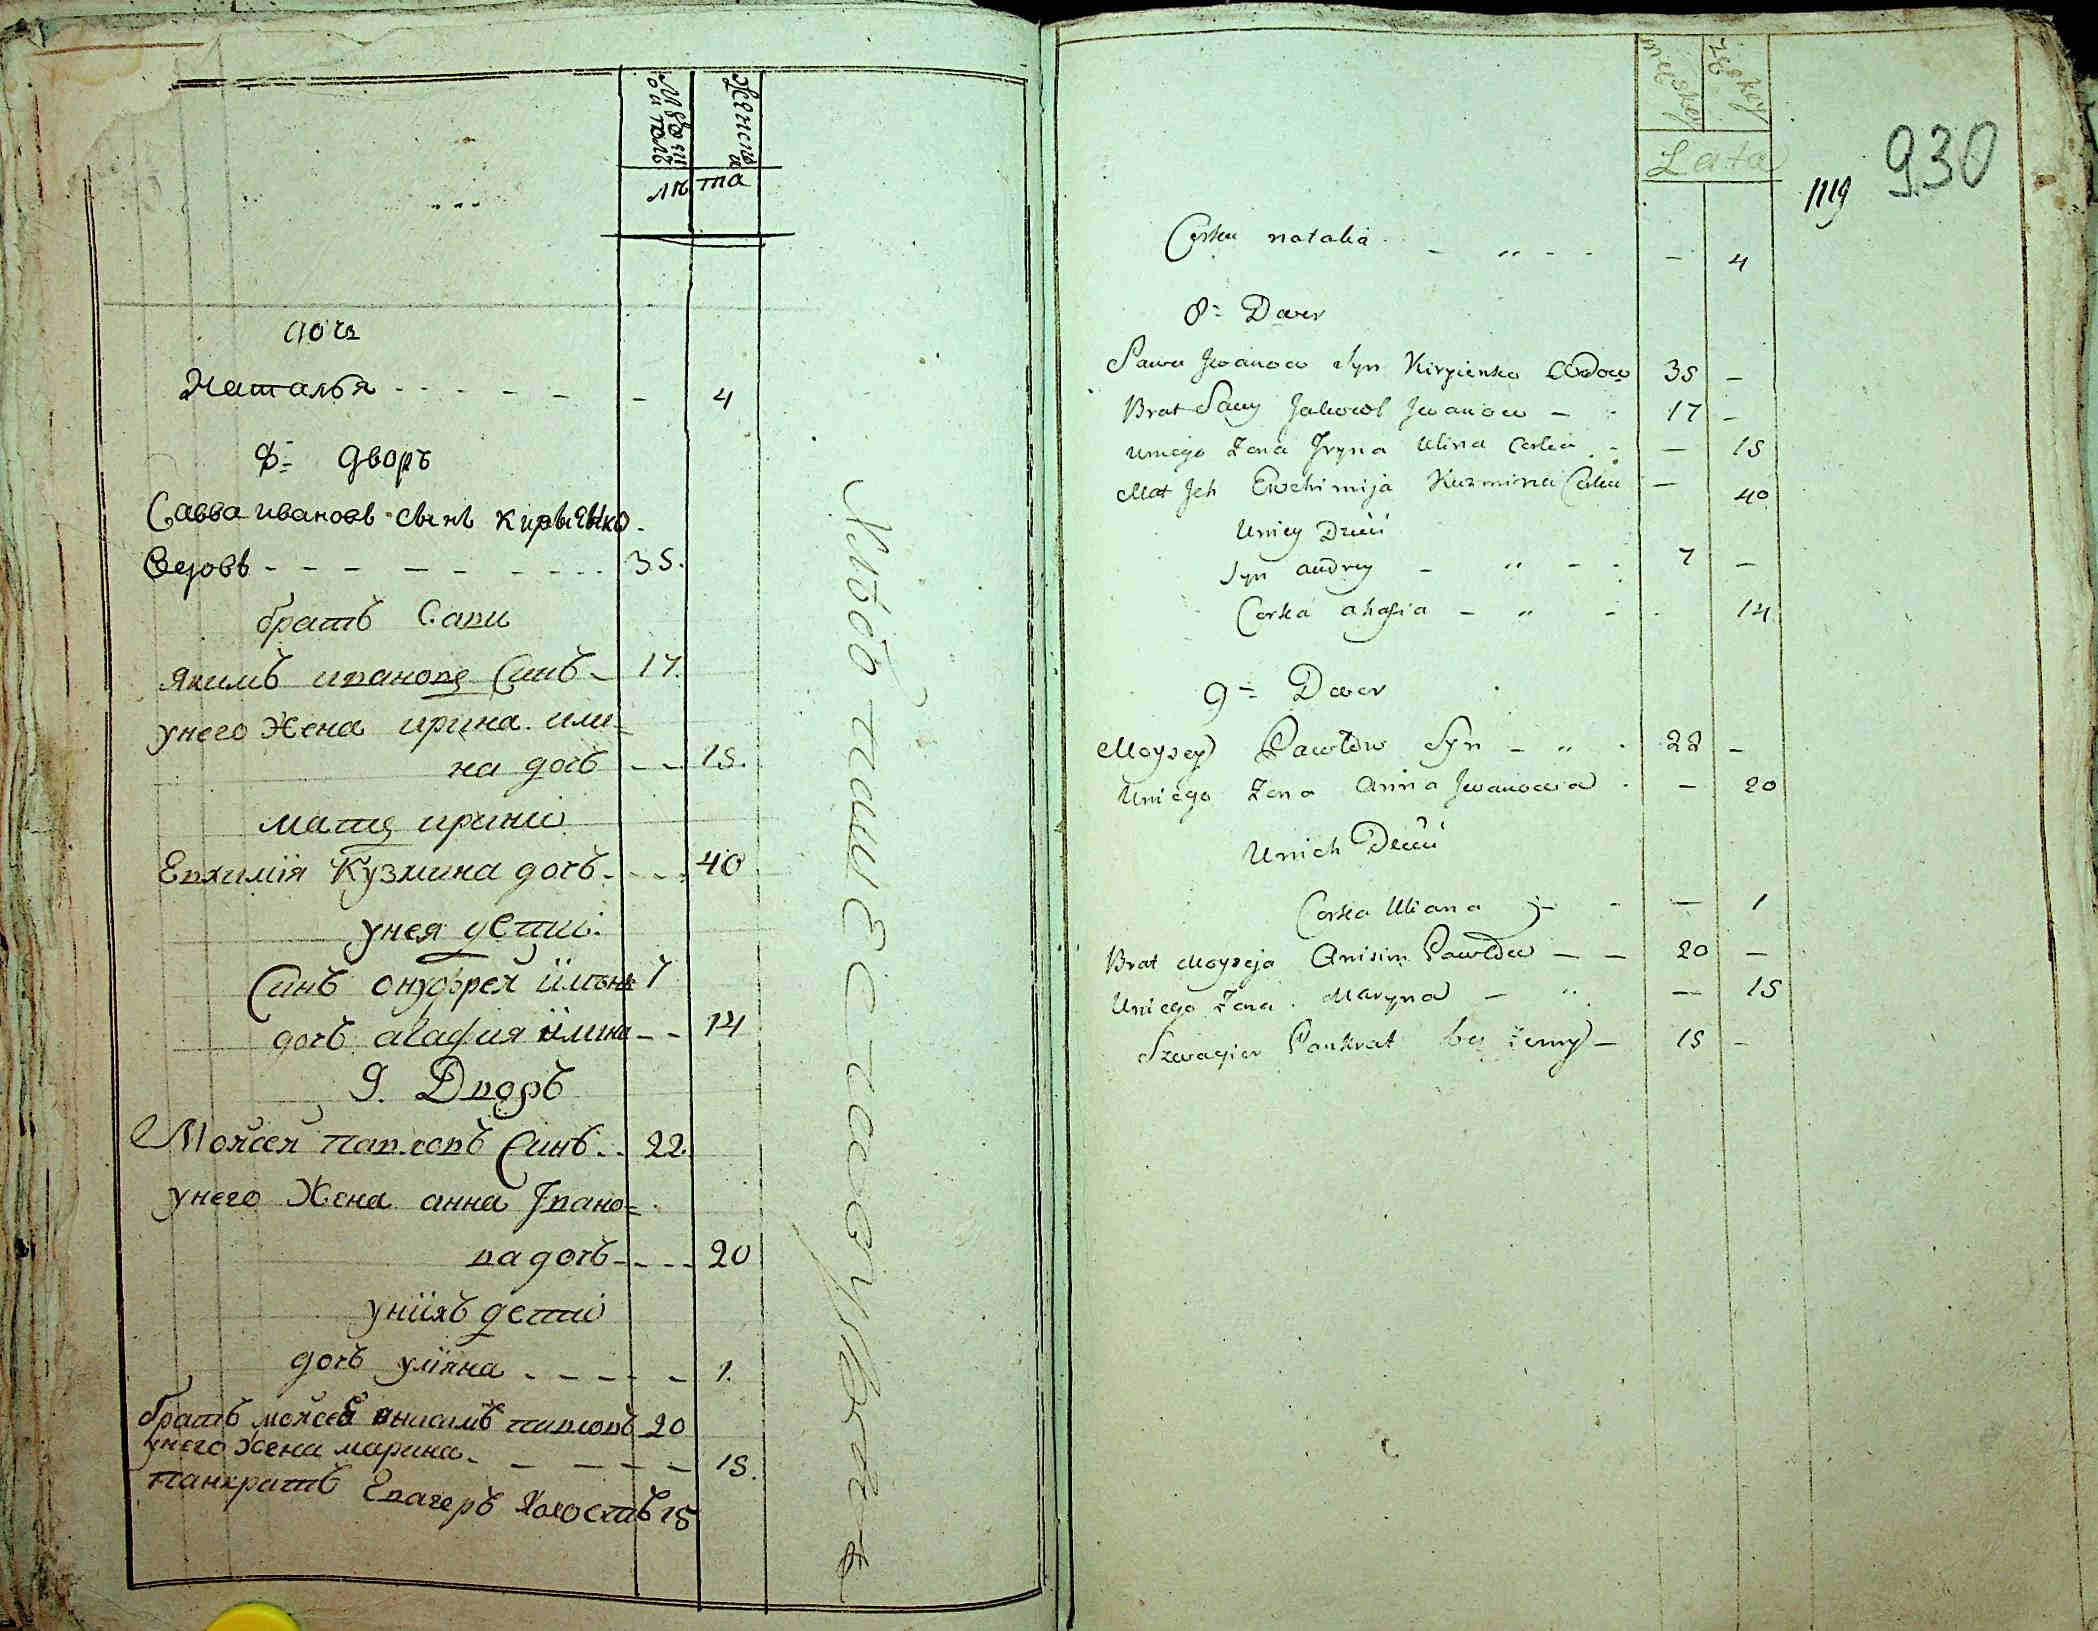 Мужеска полъ
Женска
лѣта
дочь
Наталья - - - - - - 4
8= дворъ
Савва ивановъ сынъ кирьѣнко
Вдовъ - - - - - - - 35.
братъ Сави
якимъ иванова Синъ - 17.
унего жена ирина или=
на дочъ - - - 15.
матъ ирини
Евхимїя Кузмина дочъ - - - 40
унея дети:
Синъ онуфрей 7
дочъ агафия илина - - 14
9. Дворъ
Мойсей павловъ Синъ - . 22.
унего Жена анна Івано=
ва дочъ - - - - 20
унїихъ дети
дочъ улїяна - - - - - 1.
братъ мойсея анисимъ павловъ 20
унего жена марина - - - - - 15.
панкратъ Холостъ 15
męskey
żeskey
Lata
1119
930
Corka natalia - " - - - 4
8= Dwor
Sawa Jwanow Syn Kirpienko Wdow 35 -
Brat Sawy Jakowl Jwanow - - 17 -
uniego Żena Jryna Ulina Corka - - 15
Mat Jeh Ewchimija Kuzmina Corka - 40
Unicy Dzieci
Syn andrey - " - - 7 -
Corka ahafia - " - . 14
9= Dwor
Moysey Pawłow Syn - " . 22 -
Uniego Żena Anna Jwanowna . - 20
Unich Dzieci
Corka Uliana - - - 1
Brat Moyseja Anisim Pawłow - - 20 -
Uniego Żena Maryna - " - 15
Szwagier Pankrat bez żeny - 15 -